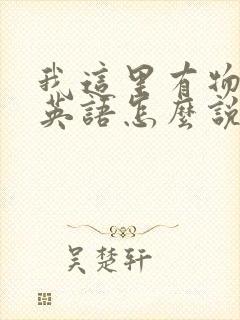 我這里有物
英語怎麼說
吴楚轩